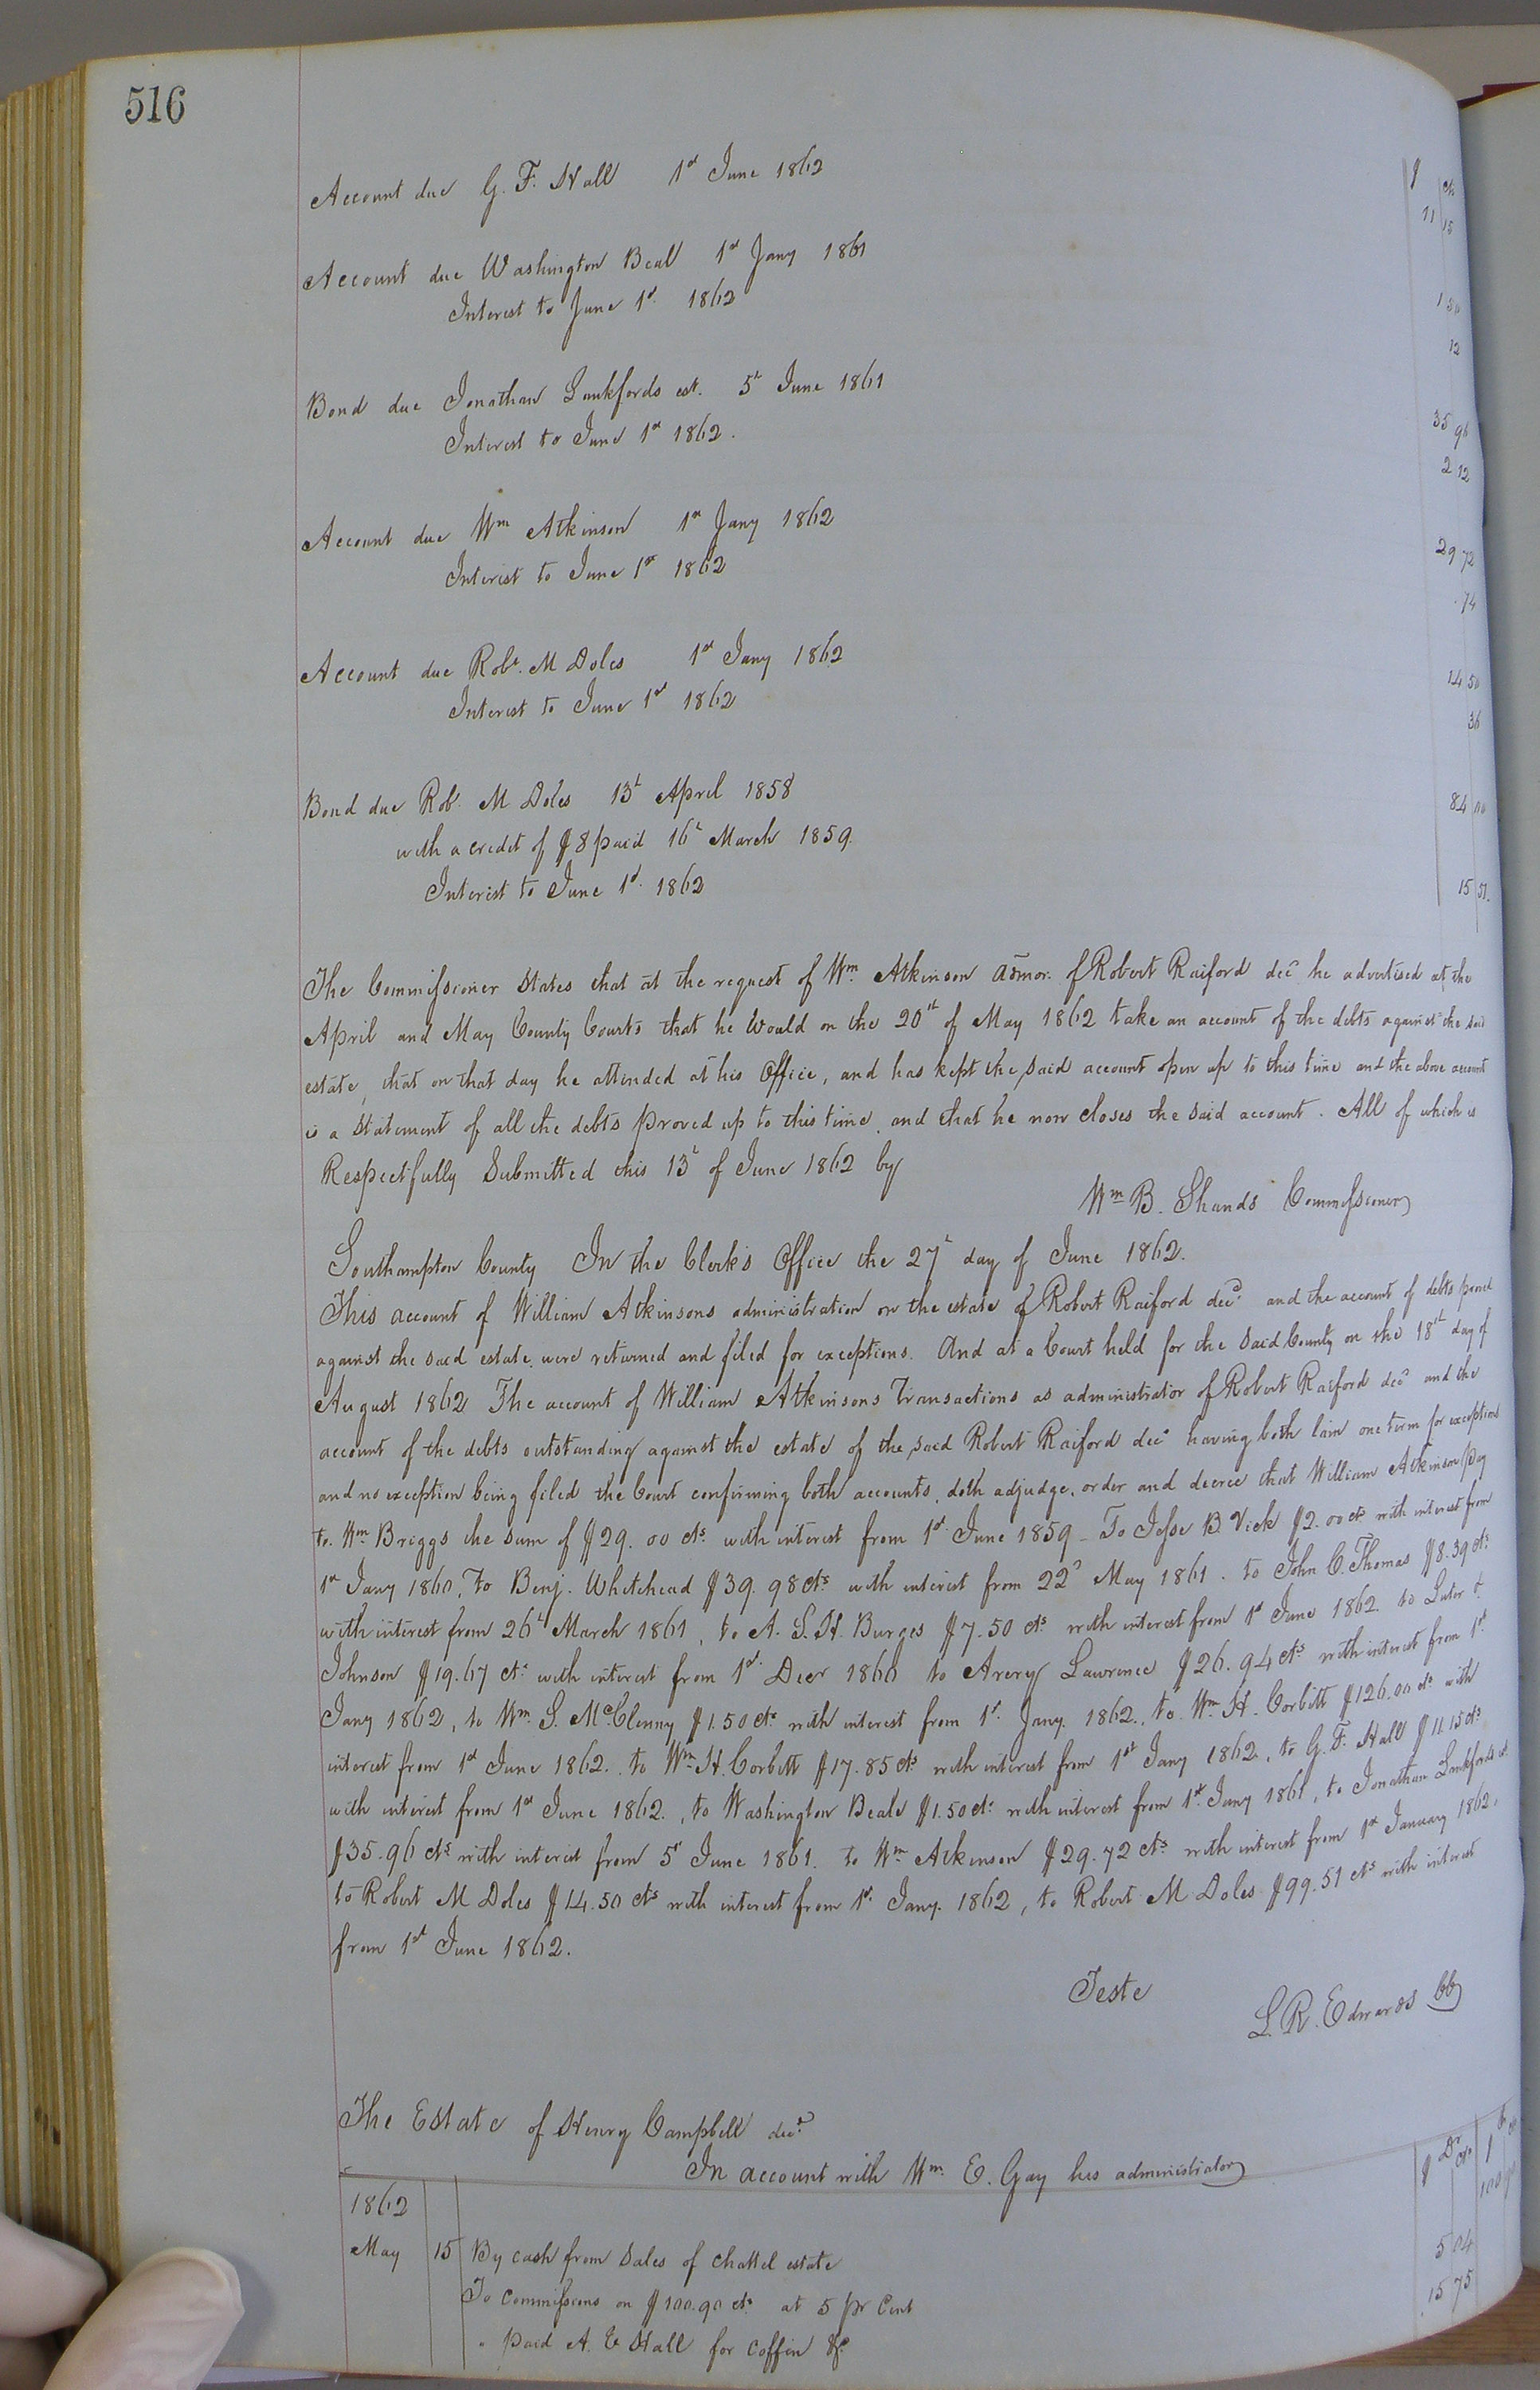 516
$ cts
Account due G. F. Hall 1st June 1862 11 15
Account due Washington Beal 1st Jany 1861 1 50
Interest to June 1st 1862 12
Bond due Jonathan Lankfords est. 5t June 1861 35 96
Interest to June 1st 1862. 2 12
Account due Wm Atkinson 1st Jany 1862 29 72
Interest to June 1st 1862 74
Account due Robt. M Doles 1st Jany 1862 14 50
Interest to June 1st 1862 36
Bond due Rob. M Doles 13t April 1858 84 00
with a credit of $8 paid 16t March 1859.
Interest to June 1st 1862 15 51.
The Commissioner States that at the request of Wm. Atkinson admor. of Robert Raiford decd he advertised at the
April and May County Courts that he would on the 20th of May 1862 take an account of the debts against the said
estate, that on that day he attended at his Office, and has kept the said account open up to this time and the above account
is a Statement of all the debts proved up to this time, and that he now closes the said account. All of which is
Respectfully Submitted this 13t of June 1862 by
Wm B. Shands Commissioner
Southampton County In the Clerk's Office the 27t day of June 1862.
This account of William Atkinsons administration on the estate of Robert Raiford decd. and the account of debts proved
against the said estate, were returned and filed for exceptions. And at a Court held for the said County on the 18th day of
August 1862 The account of William Atkinsons Transactions as administrator of Robert Raiford decd and the
account of the debts outstanding against the estate of the said Robert Raiford decd having both lain one term for exceptions
and no exception being filed the Court confirming both accounts, doth adjudge, order and decree that William Atkinson pay
to Wm. Briggs the sum of $29.00 cts. with interest from 1st June 1859 - To Jesse B. Vick $2.00 cts with interest from
1st Jany 1860, To Benj. Whitehead $39.98 cts with interest from 22d May 1861. to John C. Thomas $8.39 cts
with interest from 26t March 1861, to A. S. H. Burges $7.50 cts with interest from 1st June 1862 to Luter &
Johnson $19.67 cts with interest from 1st. Decr 1860 to Avery Lawrence $26.94 cts with interest from 1st
Jany 1862, to Wm. S. McClenny $1.50 cts with interest from 1st. Jany. 1862., to Wm. H. Corbitt $126.00 cts with
interest from 1st June 1862. to Wm H. Corbitt $17.85 cts with interest from 1st Jany 1862., to G. F. Hall $11.15 cts
with interest from 1st June 1862., to Washington Beale $1.50 cts with interest from 1st Jany 1861, to Jonathan Lankfords est
$35.96 cts with interest from 5t June 1861. to Wm Atkinson $29.72 cts with interest from 1st January 1862,
to Robert M Doles $14.50 cts with interest from 1st. Jany. 1862, to Robert M Doles $99.51 cts with interest
from 1st June 1862.
Teste
L. R. Edwards CC
The Estate of Henry Campbell decd.
In account with Wm. E. Gay his administrator
$ Dr cts $ Cr cts
1862
May 15 By cash from Sales of chattel estate 100 90
To Commissions on $100.90 cts at 5 pr Cent 5 04
" paid A. E Hall for coffin &c. 15 75